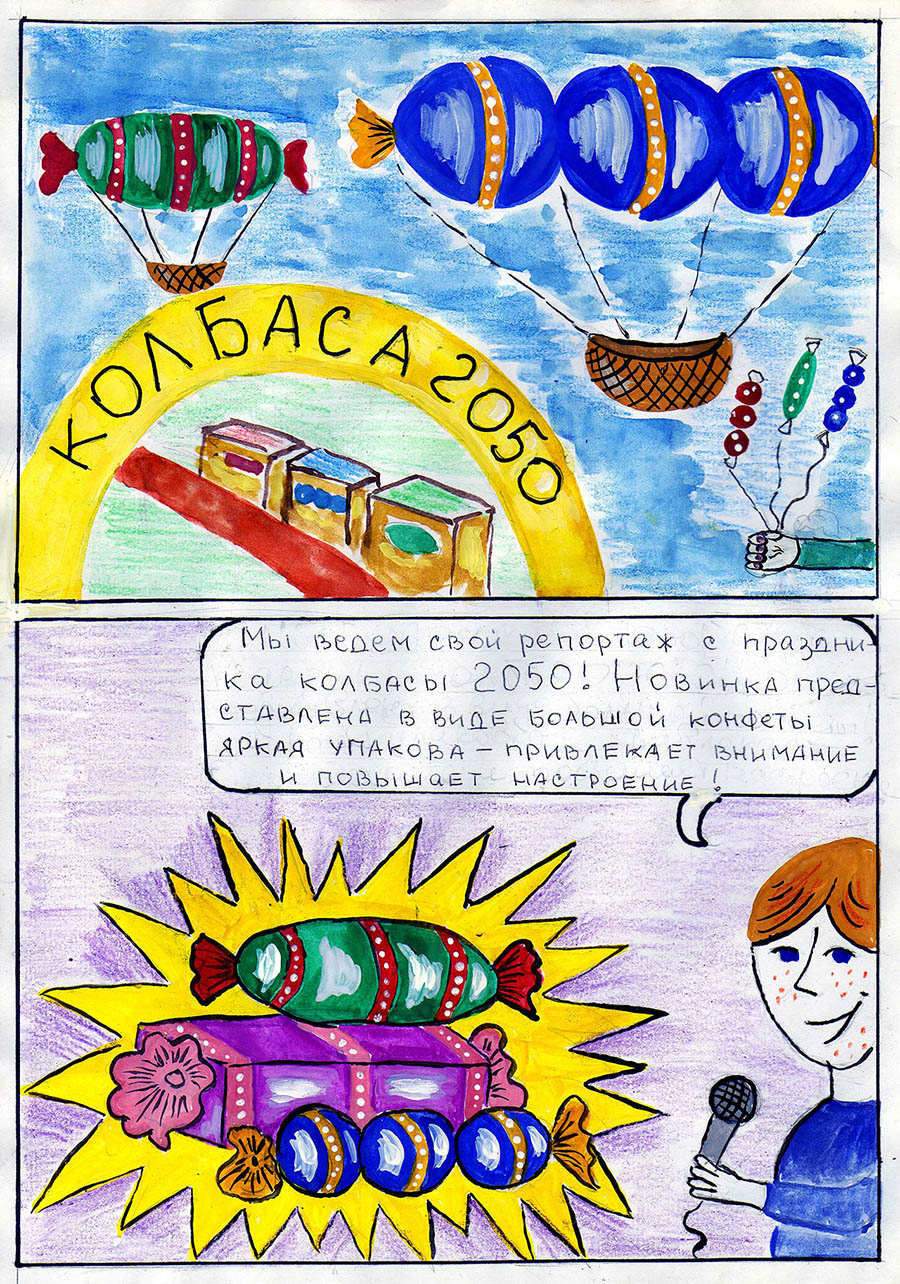 КОЛБАСА 2050
Мы ведем свой репортаж с праздни-
ка колбасы 2050! Новинка пред-
ставлена в виде большой конфеты
яркая упакова – привлекает внимание
и повышает настроение!